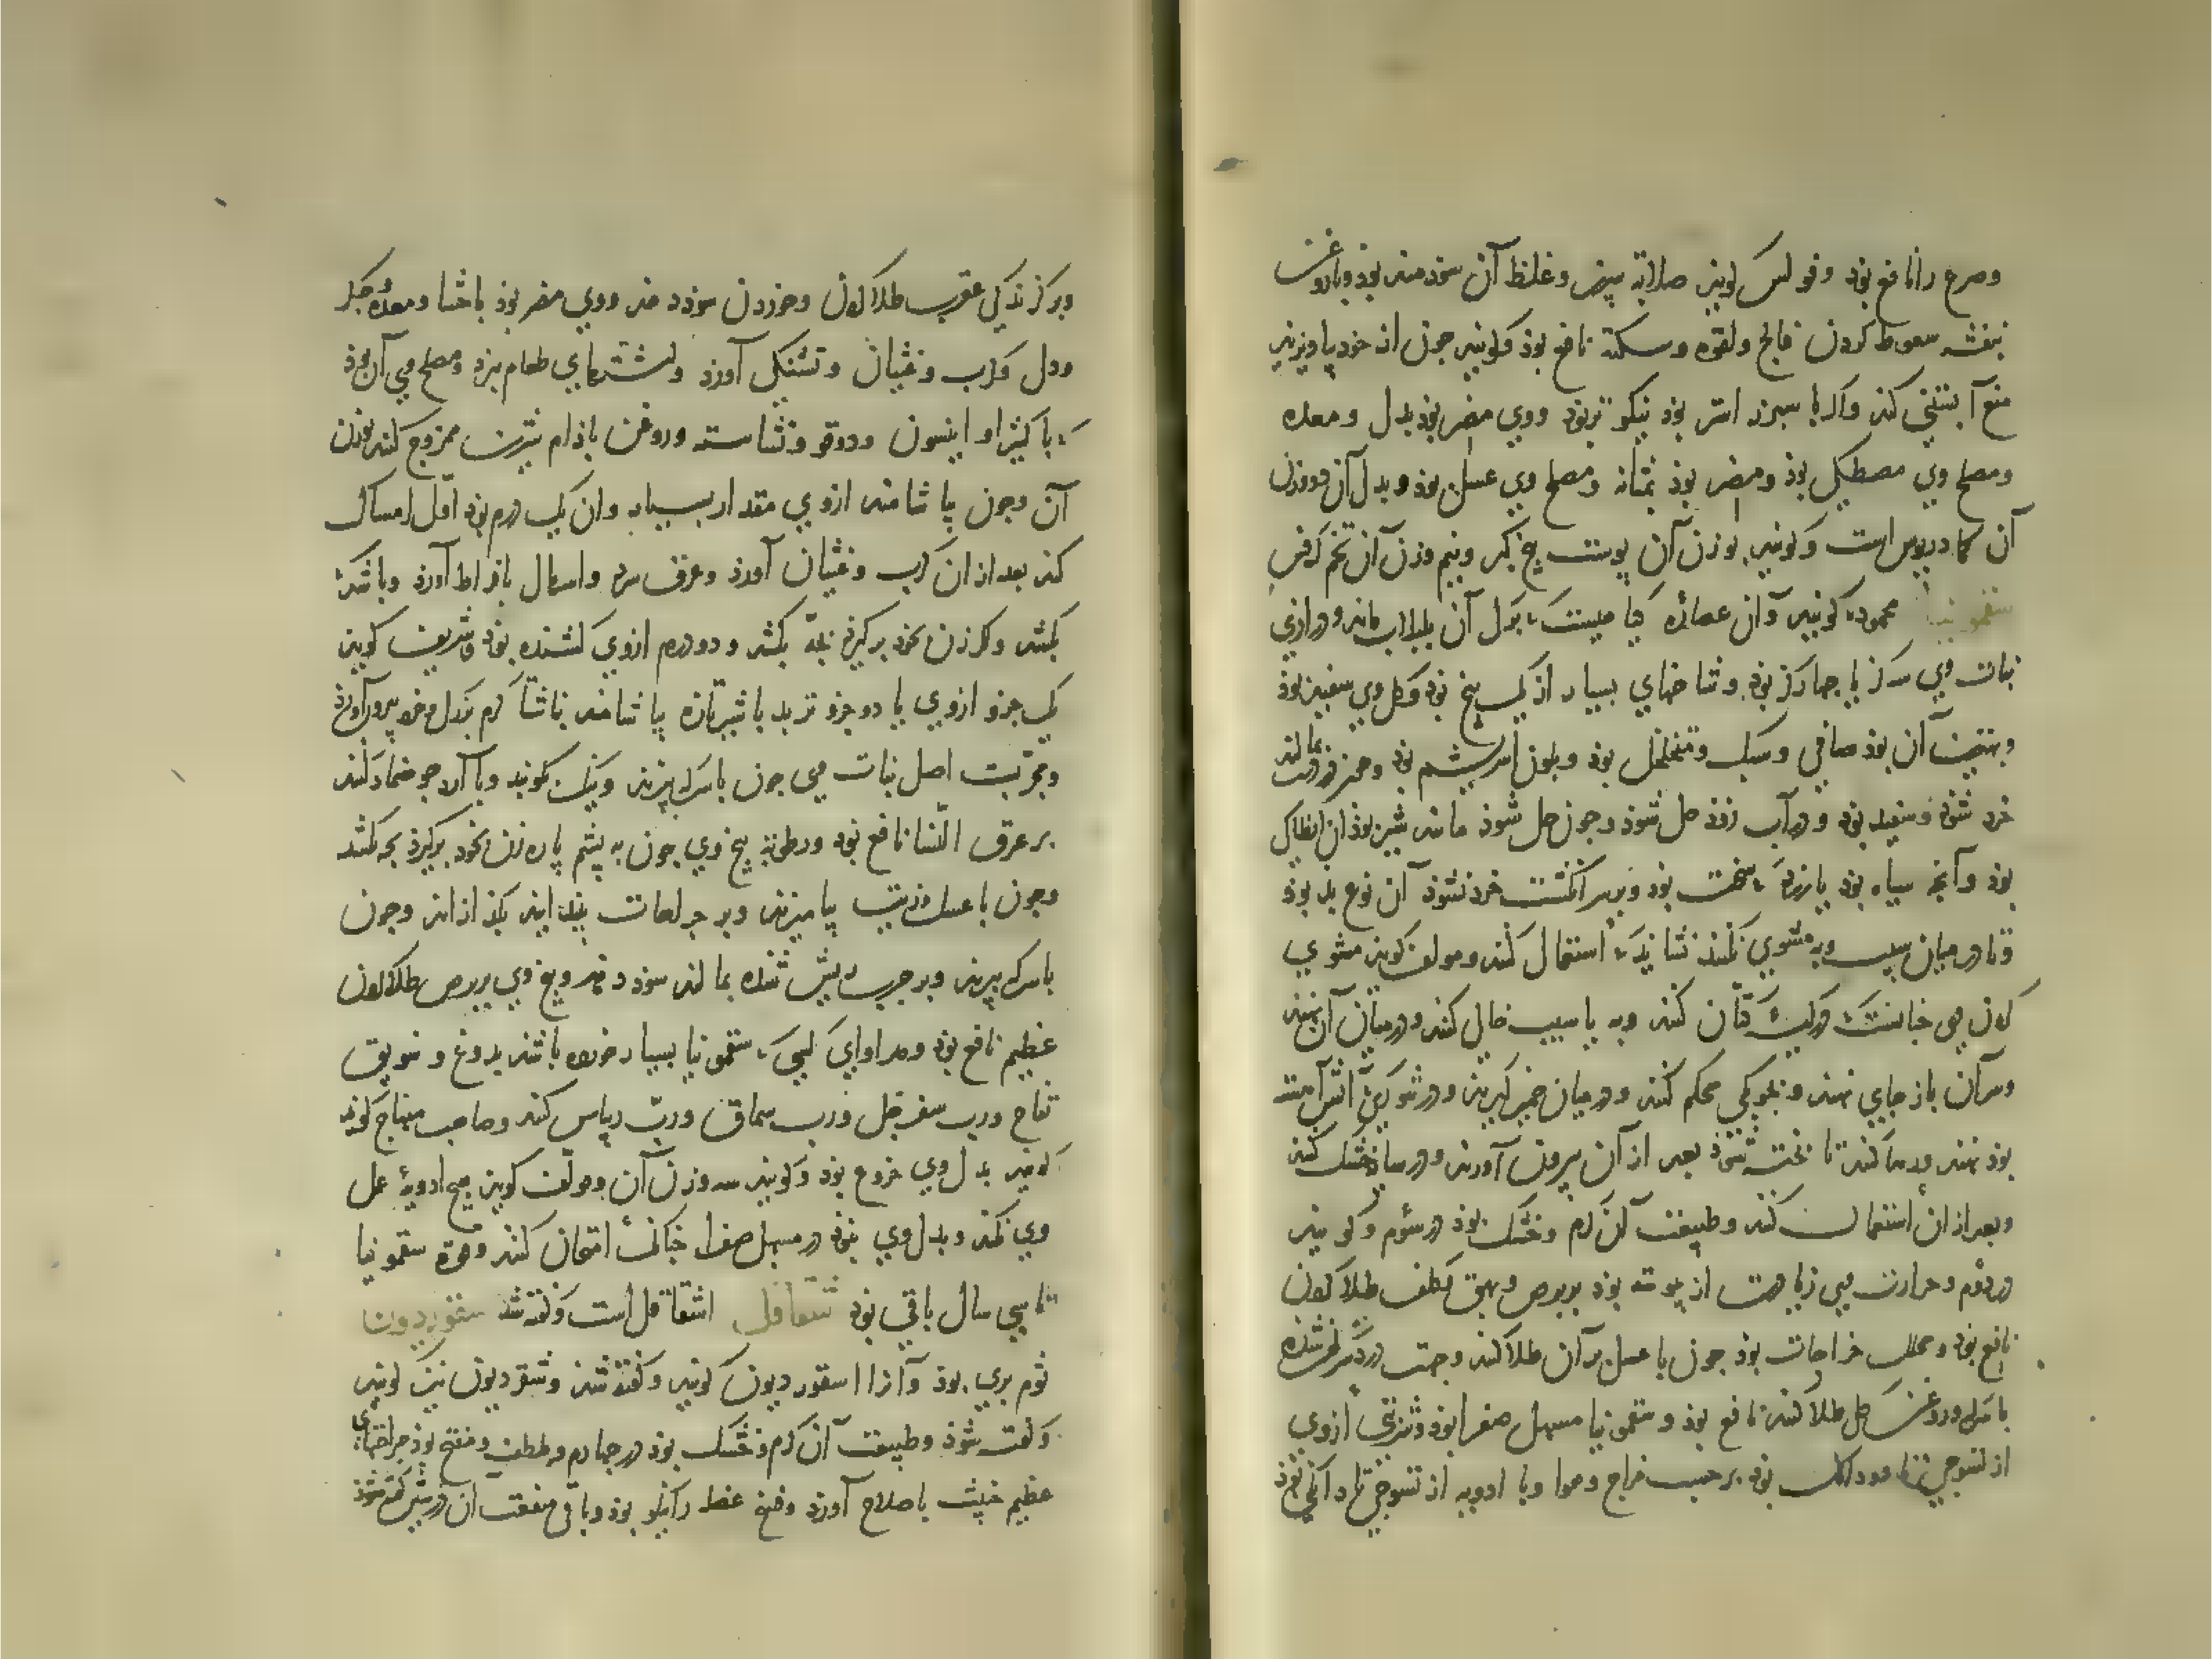 وصرع را نافع بوذ وفولس کویذ صلابة سپرز و غلظ آن سوذمند بوذ وبا روغن
بنفشه سعوط کردن فالج ولقوه و سکته نافع بوذ وکویند جون زن خوذ با
منع آبستنی کند واکر با سپرز اشتر بوذ نیکوتر بوذ ووی مضر بوذ بدل ومعده
ومصلح وی مصطکی بوذ ومضر بوذ بمثانه ومصلح وی عسل بوذ وبدل آن دو وزن
آن کمادریوس است وکویند بوزن آن پوست بیخ کبر ونیم وزن آن تخم کرفس
سقمونیا محموده کویند وآن عصاره کیاهیست برک آن بلبلاب ماند ودرازی
نبات وی سه کز یا جهار کز بوذ وشاخهای بسیار از یک بیخ بوذ وکل وی سفید بوذ
وبهترین آن بوذ صافی وسبک ومتخلخل بوذ وبلون سریشم بوذ وجون در دست بمالند
خرد شوذ وسفید بوذ ودر آب زوذ حل شوذ وجون حل شوذ مانند شیر بوذ آن انطاکی
بوذ وآنجه سیاه بوذ یا زرد سخت بوذ وبسر انکشت خرد نشوذ آن نوع بد بوذ
وتا در میان سیب وبه مشوی نکنند نشاید استعمال کنند ومولف کویذ مشوی
کردن وی جنانست در کیسه کتان کنند وبه یا سیب خالی کنند ودر میان آن نهند
وسر آن باز جای نهند وبجوبکی محکم کنند ودر میان خمیر کیرند ودر تنوری که آتش آهسته
بوذ نهند ورها کنند تا بخته شوذ بعد از آن بیرون آورند ودر سایه خشک کنند
وبعد از آن استعمال کنند وطبیعت آن کرم وخشک بوذ در سئوم وکویند
در دوم وحرارت وی زیادت از یبوست بوذ بر برص وبهق وکلف طلا کردن
نافع بوذ ومحلل خراجات بوذ جون با عسل بر آن طلا کنند وجهت درد سر کهن شده
با سرکه وروغن کل طلا کنند نافع بوذ وسقمونیا مسهل صفرا بوذ وشربتی ازوی
از تسوجی تا دو دانک بوذ بر حسب مزاج وهوا وبا ادویه از تسوجی تا دانکی بوذ
وبر کزندکی عقرب طلا کردن وخوردن سوذ دهد ووی مضر بوذ باحشا ومعده وجکر
ودل وکرب وغثیان وتشنکی آورد واشتهای طعام ببرد ومصلح وی آن بوذ
که با کثیرا وانیسون ودوقو ونشاسته وروغن باذام شیرین ممزوج کنند بوزن
آن وجون بیاشامند ازوی مقدار بسیار وآن یک درم بوذ اول امساک
کند بعد از آن کرب وغثیان آورد وعرق سرد واسهال بافراط آورد وباشد که
بکشد وکر زن بخوذ برکیرد بجه بکشد ودو درم ازوی کشنده بوذ وشریف کویذ
یک جزو ازوی با دو جزو تربد با شیر تازه بیاشامند ناشتا کرم بزرک وخرد بیرون آورد
ومجربست اصل نبات وی جون با سرکه بپزند ونیک بکوبند وبا آرد جو ضماد کنند
بر عرق النسا نافع بوذ ورطوبة بیخ وی جون به پشم پاره زن بخود برکیرد بجه بکشد
وجون با عسل وزیت بیامیزند وبر جراحات بندایند بکذازاند وجون
با سرکه بپزند وبر جرب ریش شده بمالند سوذ دهد وبیخ وی بر برص طلا کردن
عظیم نافع بوذ ومداوای کسی که سقمونیا بسیار خورده باشد بدوغ وسویق
تفاح ورب سفرجل ورب سماق ورب ریباس کنند وصاحب منهاج کویذ
کویند بدل وی خروع بوذ وکویند سه وزن آن ومولف کویذ هیج ادویه عمل
وی نکند وبدل وی نبوذ در مسهل صفرا جنانک امتحان کنند وقوة سقمونیا
تا سی سال باقی بوذ شقاقل اشقاقل است وکفته شد سقوردیون
ثوم بری بوذ وآنرا اسقوردیون کویند وکفته شد وشقردیون نیز کویند
وکفته شوذ وطبیعت آن کرم وخشک بوذ در جهارم وملطف ومفتح بوذ جراحتهای
عظیم خبیث باصلاح آورد وفسخ عضل را نیکو بوذ وباقی منفعت آن در شین کفته شوذ